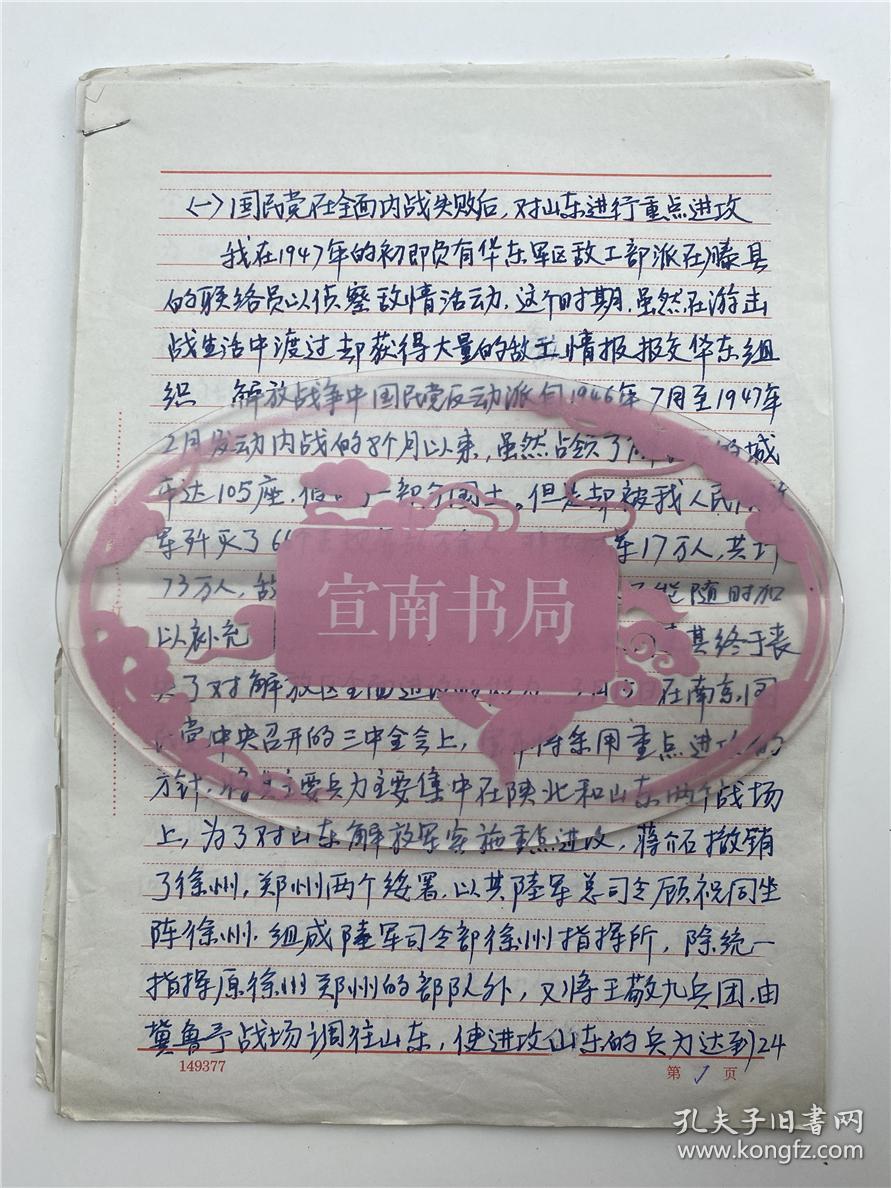 (一)国民党在全面内战失败后，对山东进行重点进攻
我在1947年的初即负有华东军区敌工部派在滕县
的联络员以侦察敌情活动，这个时期，虽然在游击
战生活中渡过却获得大量的敌 情报报交华东组
织 解放战争中国民党反动派自1946年7月至1947年
2月发动内战的8个月以来，虽然占领了 城
市达105座， 但是却被我人民
军歼灭了6 军17万人，共计
73万人，敌 随时加
以补充 其终于丧
失了对解放区全面进攻的能力。3月 日在南京，国
民党中央召开的三中全会上， 采用重点进攻的
方针，将其主要兵力主要集中在陕北和山东两个战场
上，为了对山东解放军实施重点进攻，蒋介石撤销
了徐州，郑州两个绥署，以其陸军总司令顾祝同坐
阵徐州，组成陸军司令部徐州指挥所，除统一
指挥原徐州郑州的部队外，又将王敬九兵团，由
冀鲁予战场调往山东，使进攻山东的兵力达到24
149377
第 1 页
宣南书局
孔夫子旧书网
www.kongfz.com